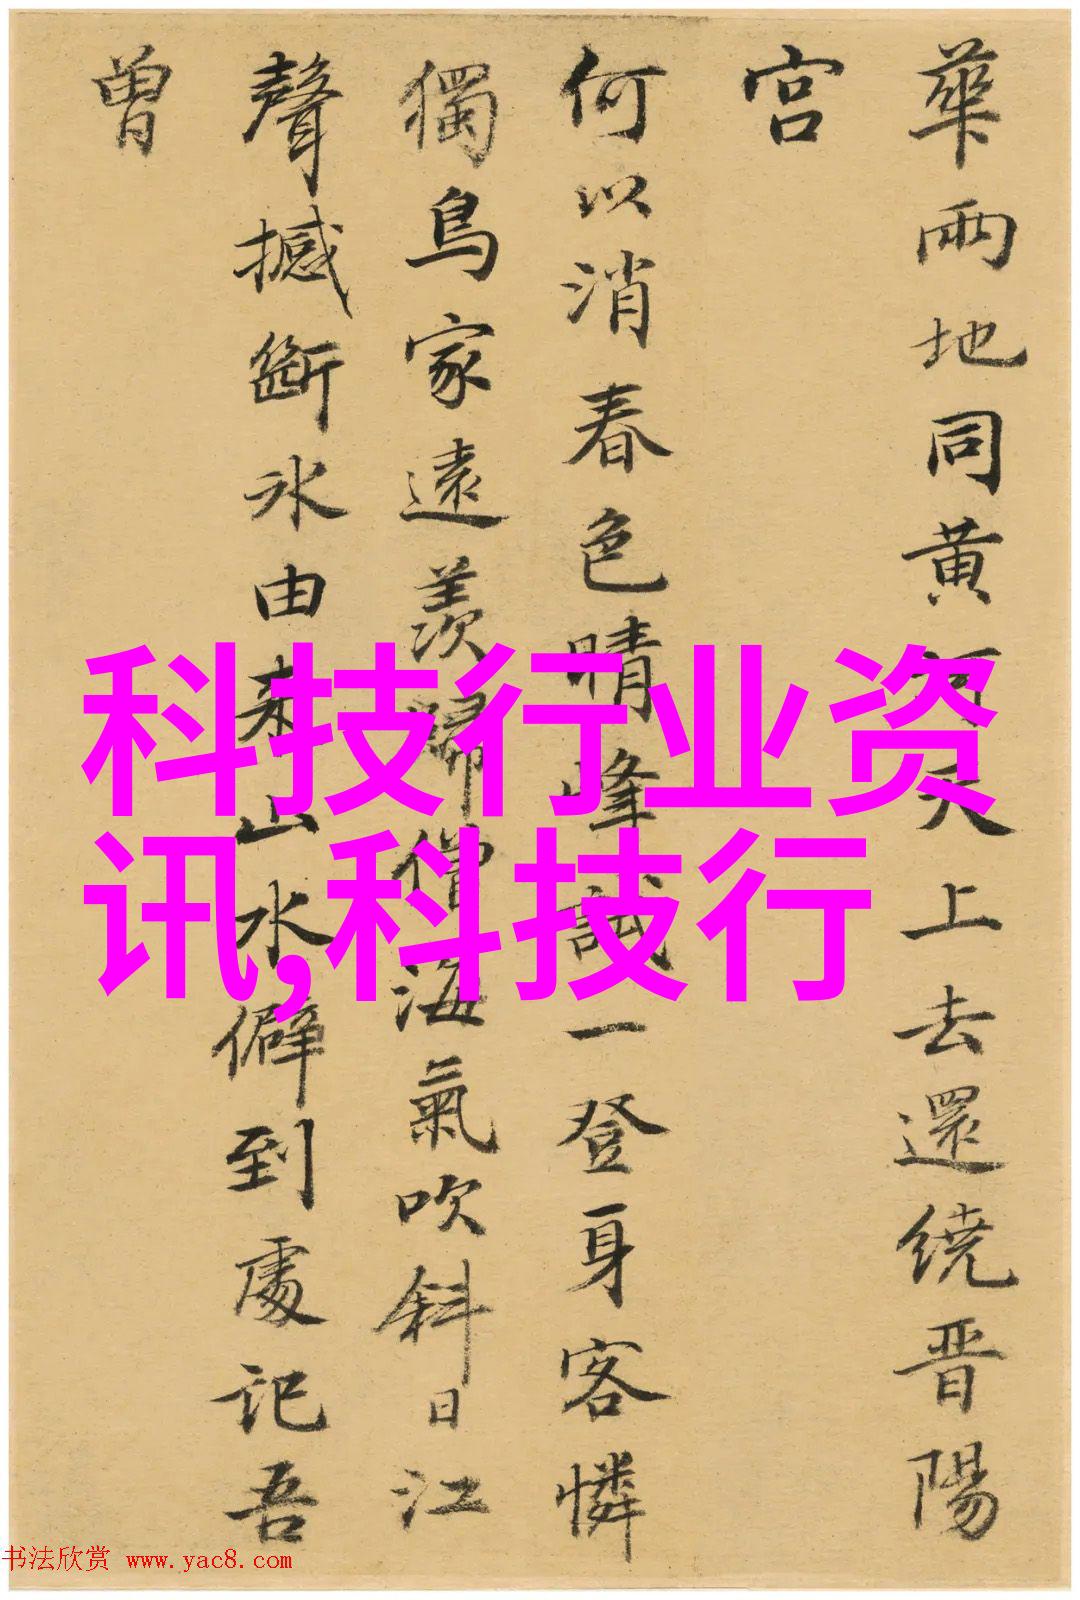 華兩地同黄河天上去還繞晋陽
宫
何以消春色晴峰試一登身客憐
獨鳥家遠羨歸僧海氣吹斜日江
聲撼斷氷由来山水僻到處記吾
曾
科技行业资
讯,科技行
书法欣赏 www.yac8.com